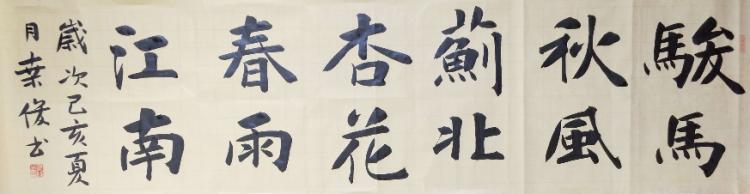 駿馬
秋風
薊北
杏花
春雨
江南
歲次己亥夏
月葉俊书